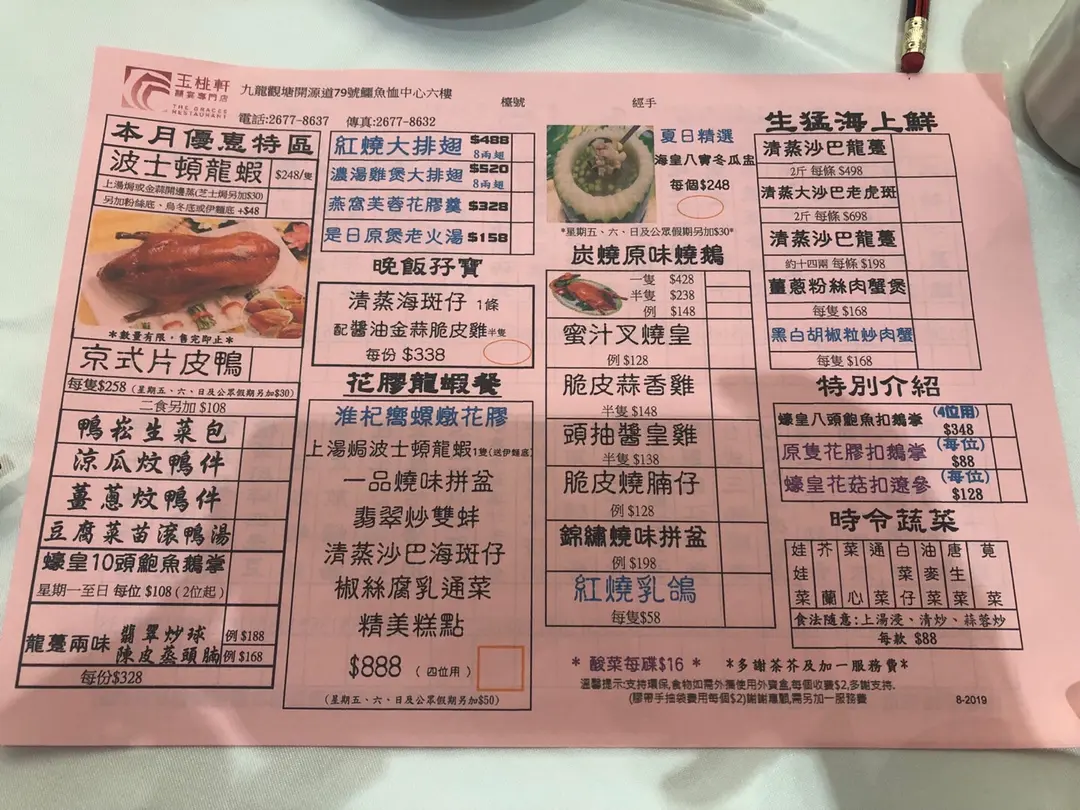 玉桃軒
囍宴專門店
THE GRACES
RESTAURANT
九龍觀塘開源道79號鱷魚恤中心六樓
檯號
經手
電話:2677-8637 傳真:2677-8632
本月優惠特區
波士頓龍蝦 $248/隻
上湯焗或金蒜開邊蒸(芝士焗另加$30)
另加粉絲底、烏冬底或伊麵底 +$48
*數量有限,售完即止*
京式片皮鴨
每隻$258 (星期五、六、日及公眾假期另加$30)
二食另加 $108
鴨崧生菜包
涼瓜炆鴨件
薑蔥炆鴨件
豆腐菜苗滾鴨湯
蠔皇10頭鮑魚鵝掌
星期一至日 每位 $108 (2位起)
龍躉兩味
翡翠炒球 例 $188
陳皮蒸頭腩 例 $168
每份$328
紅燒大排翅 $488 8兩翅
濃湯雞煲大排翅 $520 8兩翅
燕窩芙蓉花膠羹 $328
是日原煲老火湯 $158
晚飯孖寶
清蒸海斑仔 1條
配醬油金蒜脆皮雞半隻
每份 $338
花膠龍蝦餐
淮杞嚮螺燉花膠
上湯焗波士頓龍蝦1隻(送伊麵底)
一品燒味拼盆
翡翠炒雙蚌
清蒸沙巴海斑仔
椒絲腐乳通菜
精美糕點
$888 (四位用)
(星期五、六、日及公眾假期另加$50)
夏日精選
海皇八寶冬瓜盅
每個$248
*星期五、六、日及公眾假期另加$30*
炭燒原味燒鵝
一隻 $428
半隻 $238
例 $148
蜜汁叉燒皇
例 $128
脆皮蒜香雞
半隻 $148
頭抽醬皇雞
半隻 $138
脆皮燒腩仔
例 $128
錦繡燒味拼盆
例 $198
紅燒乳鴿
每隻$58
生猛海上鮮
清蒸沙巴龍躉
2斤 每條 $498
清蒸大沙巴老虎斑
2斤 每條 $698
清蒸沙巴龍躉
約十四兩 每條 $198
薑蔥粉絲肉蟹煲
每隻 $168
黑白胡椒粒炒肉蟹
每隻 $168
特別介紹
蠔皇八頭鮑魚扣鵝掌 (4位用) $348
原隻花膠扣鵝掌 (每位) $88
蠔皇花菇扣遼參 (每位) $128
時令蔬菜
娃娃菜
芥蘭
菜心
通菜
白菜仔
油麥菜
唐生菜
莧菜
食法隨意:上湯浸、清炒、蒜蓉炒
每款 $88
* 酸菜每碟$16 * *多謝茶芥及加一服務費*
溫馨提示:支持環保,食物如需外攜使用外賣盒,每個收費$2,多謝支持.
(膠帶手抽袋費用每個$2)謝謝惠顧,需另加一服務費
8-2019